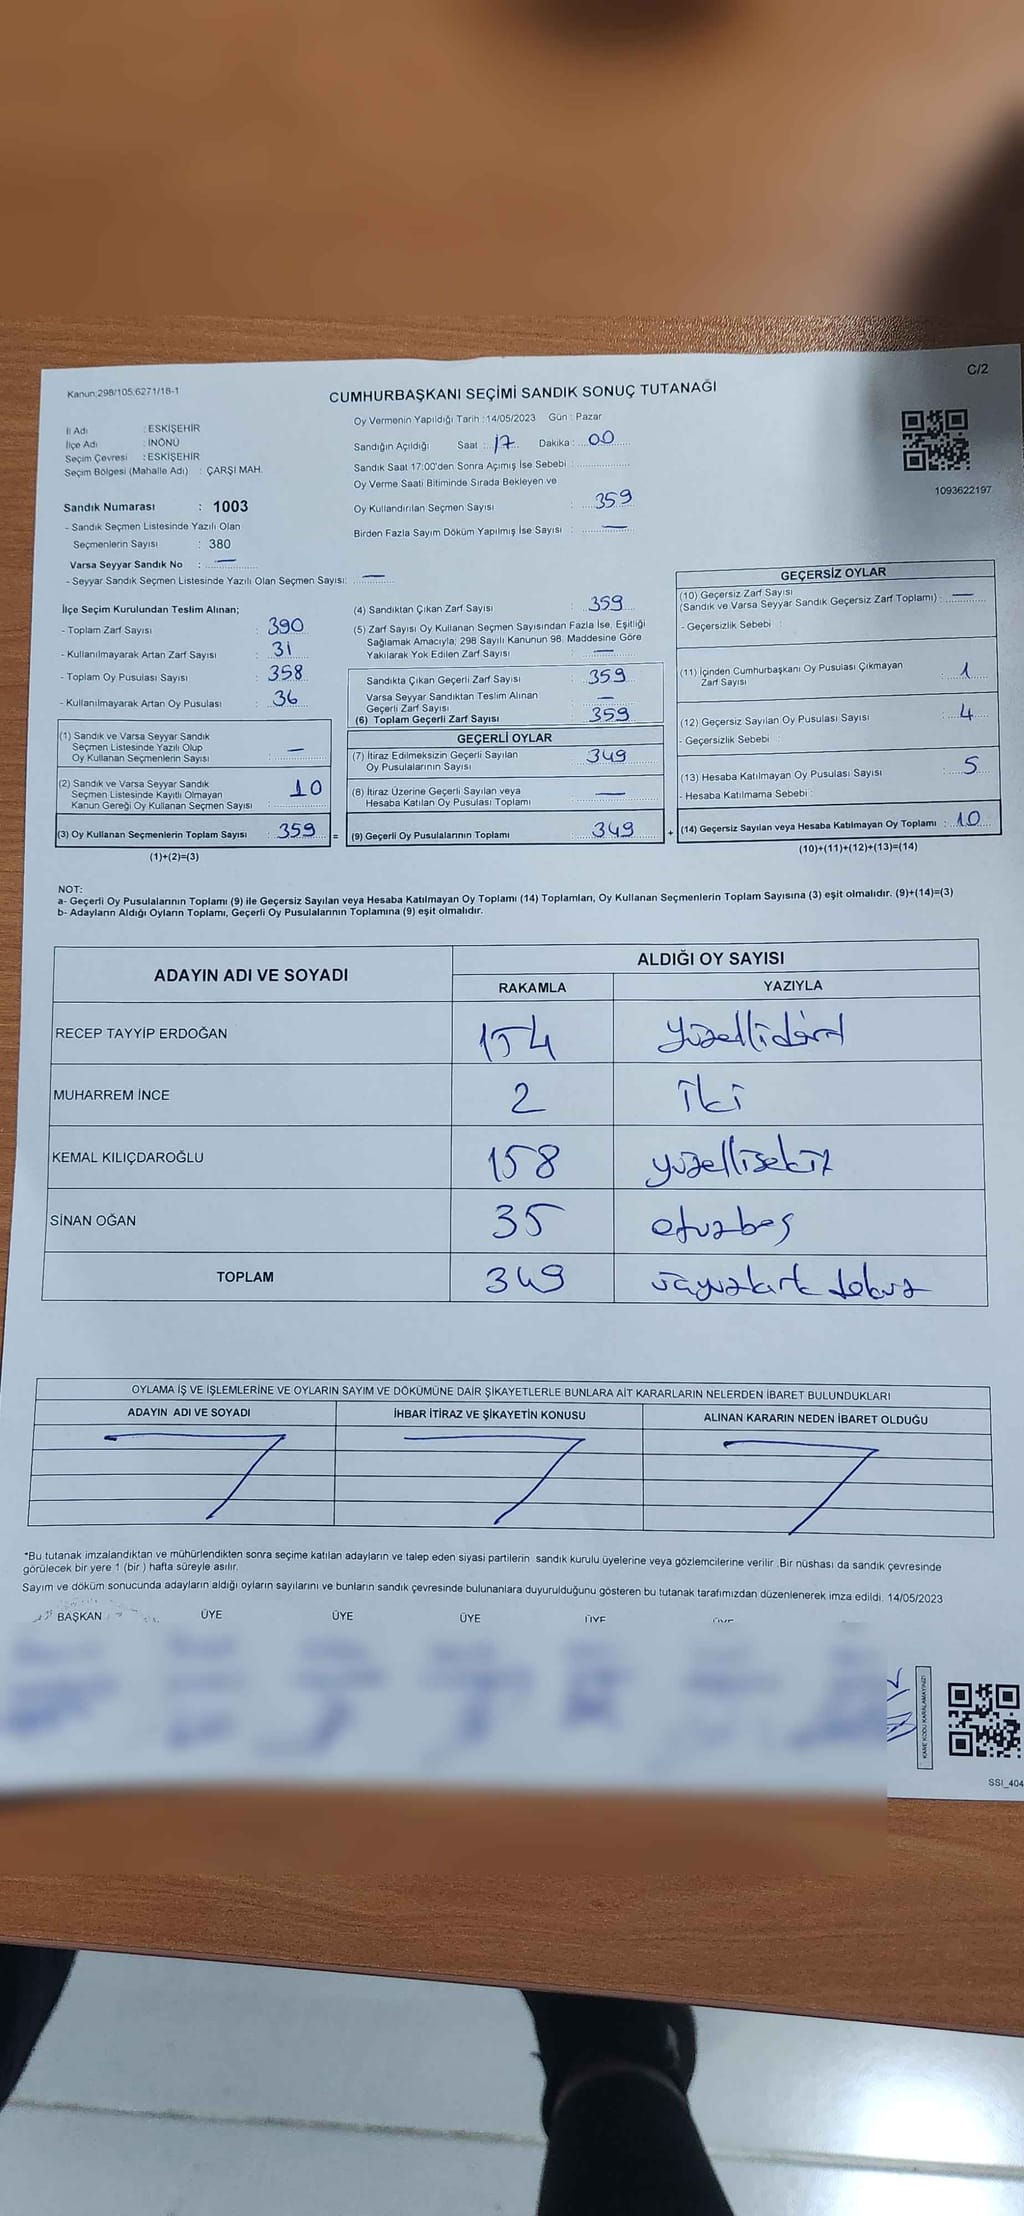 C/2
Kanun:298/105,6271/18-1
CUMHURBAŞKANI SEÇİMİ SANDIK SONUÇ TUTANAĞI
Oy Vermenin Yapıldığı Tarih :14/05/2023 Gün : Pazar
İl Adı : ESKİŞEHİR
İlçe Adı : İNÖNÜ
Seçim Çevresi : ESKİŞEHİR
Seçim Bölgesi (Mahalle Adı) : ÇARŞI MAH.
Sandığın Açıldığı Saat : 17 Dakika : 00
Sandık Saat 17:00'den Sonra Açımış İse Sebebi :
Oy Verme Saati Bitiminde Sırada Bekleyen ve
Oy Kullandırılan Seçmen Sayısı : 359
Birden Fazla Sayım Döküm Yapılmış İse Sayısı : —
1093622197
Sandık Numarası : 1003
- Sandık Seçmen Listesinde Yazılı Olan
Seçmenlerin Sayısı : 380
Varsa Seyyar Sandık No : —
- Seyyar Sandık Seçmen Listesinde Yazılı Olan Seçmen Sayısı: —
İlçe Seçim Kurulundan Teslim Alınan;
- Toplam Zarf Sayısı : 390
- Kullanılmayarak Artan Zarf Sayısı : 31
- Toplam Oy Pusulası Sayısı : 358
- Kullanılmayarak Artan Oy Pusulası : 36
(1) Sandık ve Varsa Seyyar Sandık
Seçmen Listesinde Yazılı Olup
Oy Kullanan Seçmenlerin Sayısı : —
(2) Sandık ve Varsa Seyyar Sandık
Seçmen Listesinde Kayıtlı Olmayan
Kanun Gereği Oy Kullanan Seçmen Sayısı : 10
(3) Oy Kullanan Seçmenlerin Toplam Sayısı : 359 =
(1)+(2)=(3)
(4) Sandıktan Çıkan Zarf Sayısı : 359
(5) Zarf Sayısı Oy Kullanan Seçmen Sayısından Fazla İse, Eşitliği
Sağlamak Amacıyla; 298 Sayılı Kanunun 98. Maddesine Göre
Yakılarak Yok Edilen Zarf Sayısı : —
Sandıkta Çıkan Geçerli Zarf Sayısı : 359
Varsa Seyyar Sandıktan Teslim Alınan
Geçerli Zarf Sayısı : —
(6) Toplam Geçerli Zarf Sayısı : 359
GEÇERLİ OYLAR
(7) İtiraz Edilmeksizin Geçerli Sayılan
Oy Pusulalarının Sayısı : 349
(8) İtiraz Üzerine Geçerli Sayılan veya
Hesaba Katılan Oy Pusulası Toplamı : —
(9) Geçerli Oy Pusulalarının Toplamı : 349 +
GEÇERSİZ OYLAR
(10) Geçersiz Zarf Sayısı
(Sandık ve Varsa Seyyar Sandık Geçersiz Zarf Toplamı) : —
- Geçersizlik Sebebi :
(11) İçinden Cumhurbaşkanı Oy Pusulası Çıkmayan
Zarf Sayısı : 1
(12) Geçersiz Sayılan Oy Pusulası Sayısı : 4
- Geçersizlik Sebebi :
(13) Hesaba Katılmayan Oy Pusulası Sayısı : 5
- Hesaba Katılmama Sebebi :
(14) Geçersiz Sayılan veya Hesaba Katılmayan Oy Toplamı : 10
(10)+(11)+(12)+(13)=(14)
NOT:
a- Geçerli Oy Pusulalarının Toplamı (9) ile Geçersiz Sayılan veya Hesaba Katılmayan Oy Toplamı (14) Toplamları, Oy Kullanan Seçmenlerin Toplam Sayısına (3) eşit olmalıdır. (9)+(14)=(3)
b- Adayların Aldığı Oyların Toplamı, Geçerli Oy Pusulalarının Toplamına (9) eşit olmalıdır.
ADAYIN ADI VE SOYADI ALDIĞI OY SAYISI
RAKAMLA YAZIYLA
RECEP TAYYİP ERDOĞAN 154 yüzellidört
MUHARREM İNCE 2 iki
KEMAL KILIÇDAROĞLU 158 yüzellisekiz
SİNAN OĞAN 35 otuzbeş
TOPLAM 349 üçyüzkırk dokuz
OYLAMA İŞ VE İŞLEMLERİNE VE OYLARIN SAYIM VE DÖKÜMÜNE DAİR ŞİKAYETLERLE BUNLARA AİT KARARLARIN NELERDEN İBARET BULUNDUKLARI
ADAYIN ADI VE SOYADI İHBAR İTİRAZ VE ŞİKAYETİN KONUSU ALINAN KARARIN NEDEN İBARET OLDUĞU
*Bu tutanak imzalandıktan ve mühürlendikten sonra seçime katılan adayların ve talep eden siyasi partilerin sandık kurulu üyelerine veya gözlemcilerine verilir .Bir nüshası da sandık çevresinde
görülecek bir yere 1 (bir ) hafta süreyle asılır.
Sayım ve döküm sonucunda adayların aldığı oyların sayılarını ve bunların sandık çevresinde bulunanlara duyurulduğunu gösteren bu tutanak tarafımızdan düzenlenerek imza edildi. 14/05/2023
BAŞKAN ÜYE ÜYE ÜYE ÜYE ÜYE
KARE KODU KARALAMAYINIZ!
SSI_404